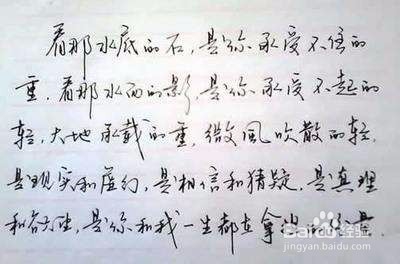 看那水底的石,是你承受不住的
重,看那水面的影,是你承受不起的
轻,大地承载的重,微风吹散的轻.
是现实和虚幻,是相信和猜疑,是真理
和 ,是你和我一生都在拿
Baidu 经验
jingyan.baidu.com